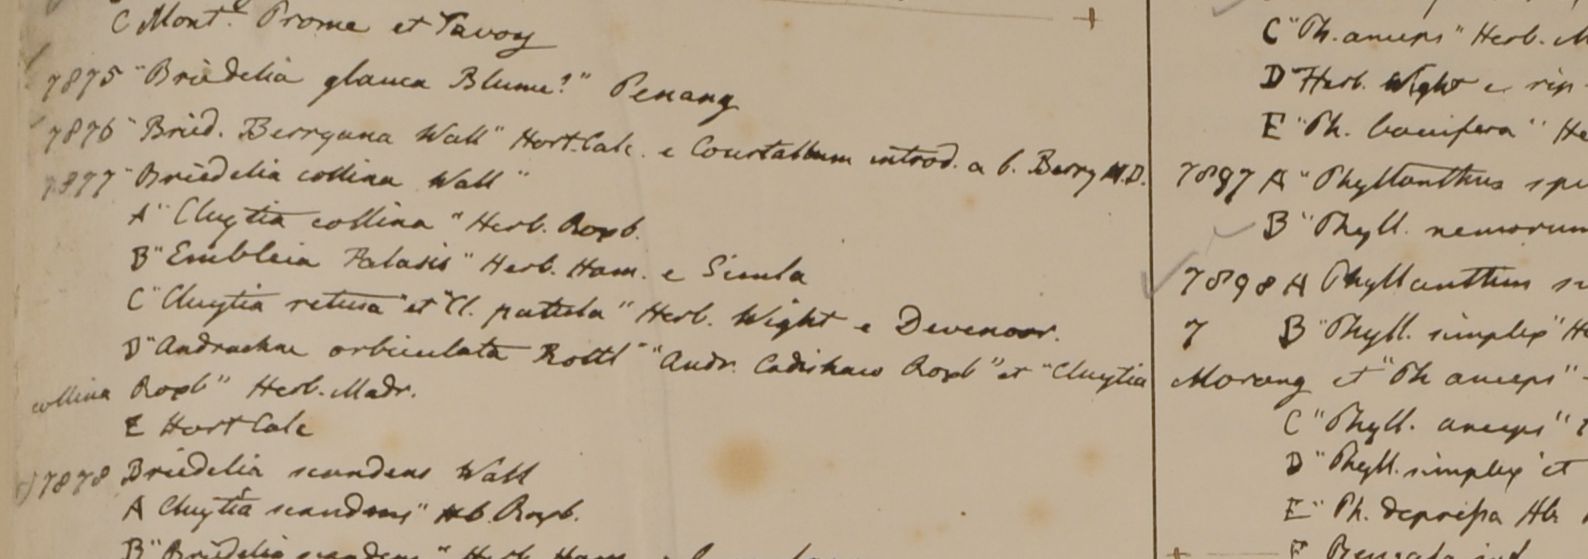 C Mont. Prome et Tavoy
7875 "Briedelia glauca Blume?" Penang
7876 "Bried. Berryana Wall" Hort. Calc. e Courtallum introd. a C. Berry M.D.
7877 "Briedelia collina Wall"
A "Cluytia collina" Herb. Roxb.
B "Embleia Palasis" Herb. Ham. e Simla
C "Cluytia retusa" et "Cl. patula" Herb. Wight e
D "Andrachne orbiculata Rottl" "Andr. Cadishaw Roxb" et "Cluytia
collina Roxb" Herb. Madr.
E Hort Calc
7878 Briedelia scandens Wall
A Cluytia scandens" Hb. Roxb.
B "Briedelia scandens" Herb. Ham.
C "Ph. anceps" Herb.
D "Herb. Wight e
E "Ph. baccifera"
7897 A "Phyllanthus
B "Phyll. nemorum
7898 A Phyllanthus
7 B "Phyll. simplex"
Morong et "Ph anceps"
C "Phyll. anceps"
D "Phyll. simplex et
E "Ph. depressa Hb
F